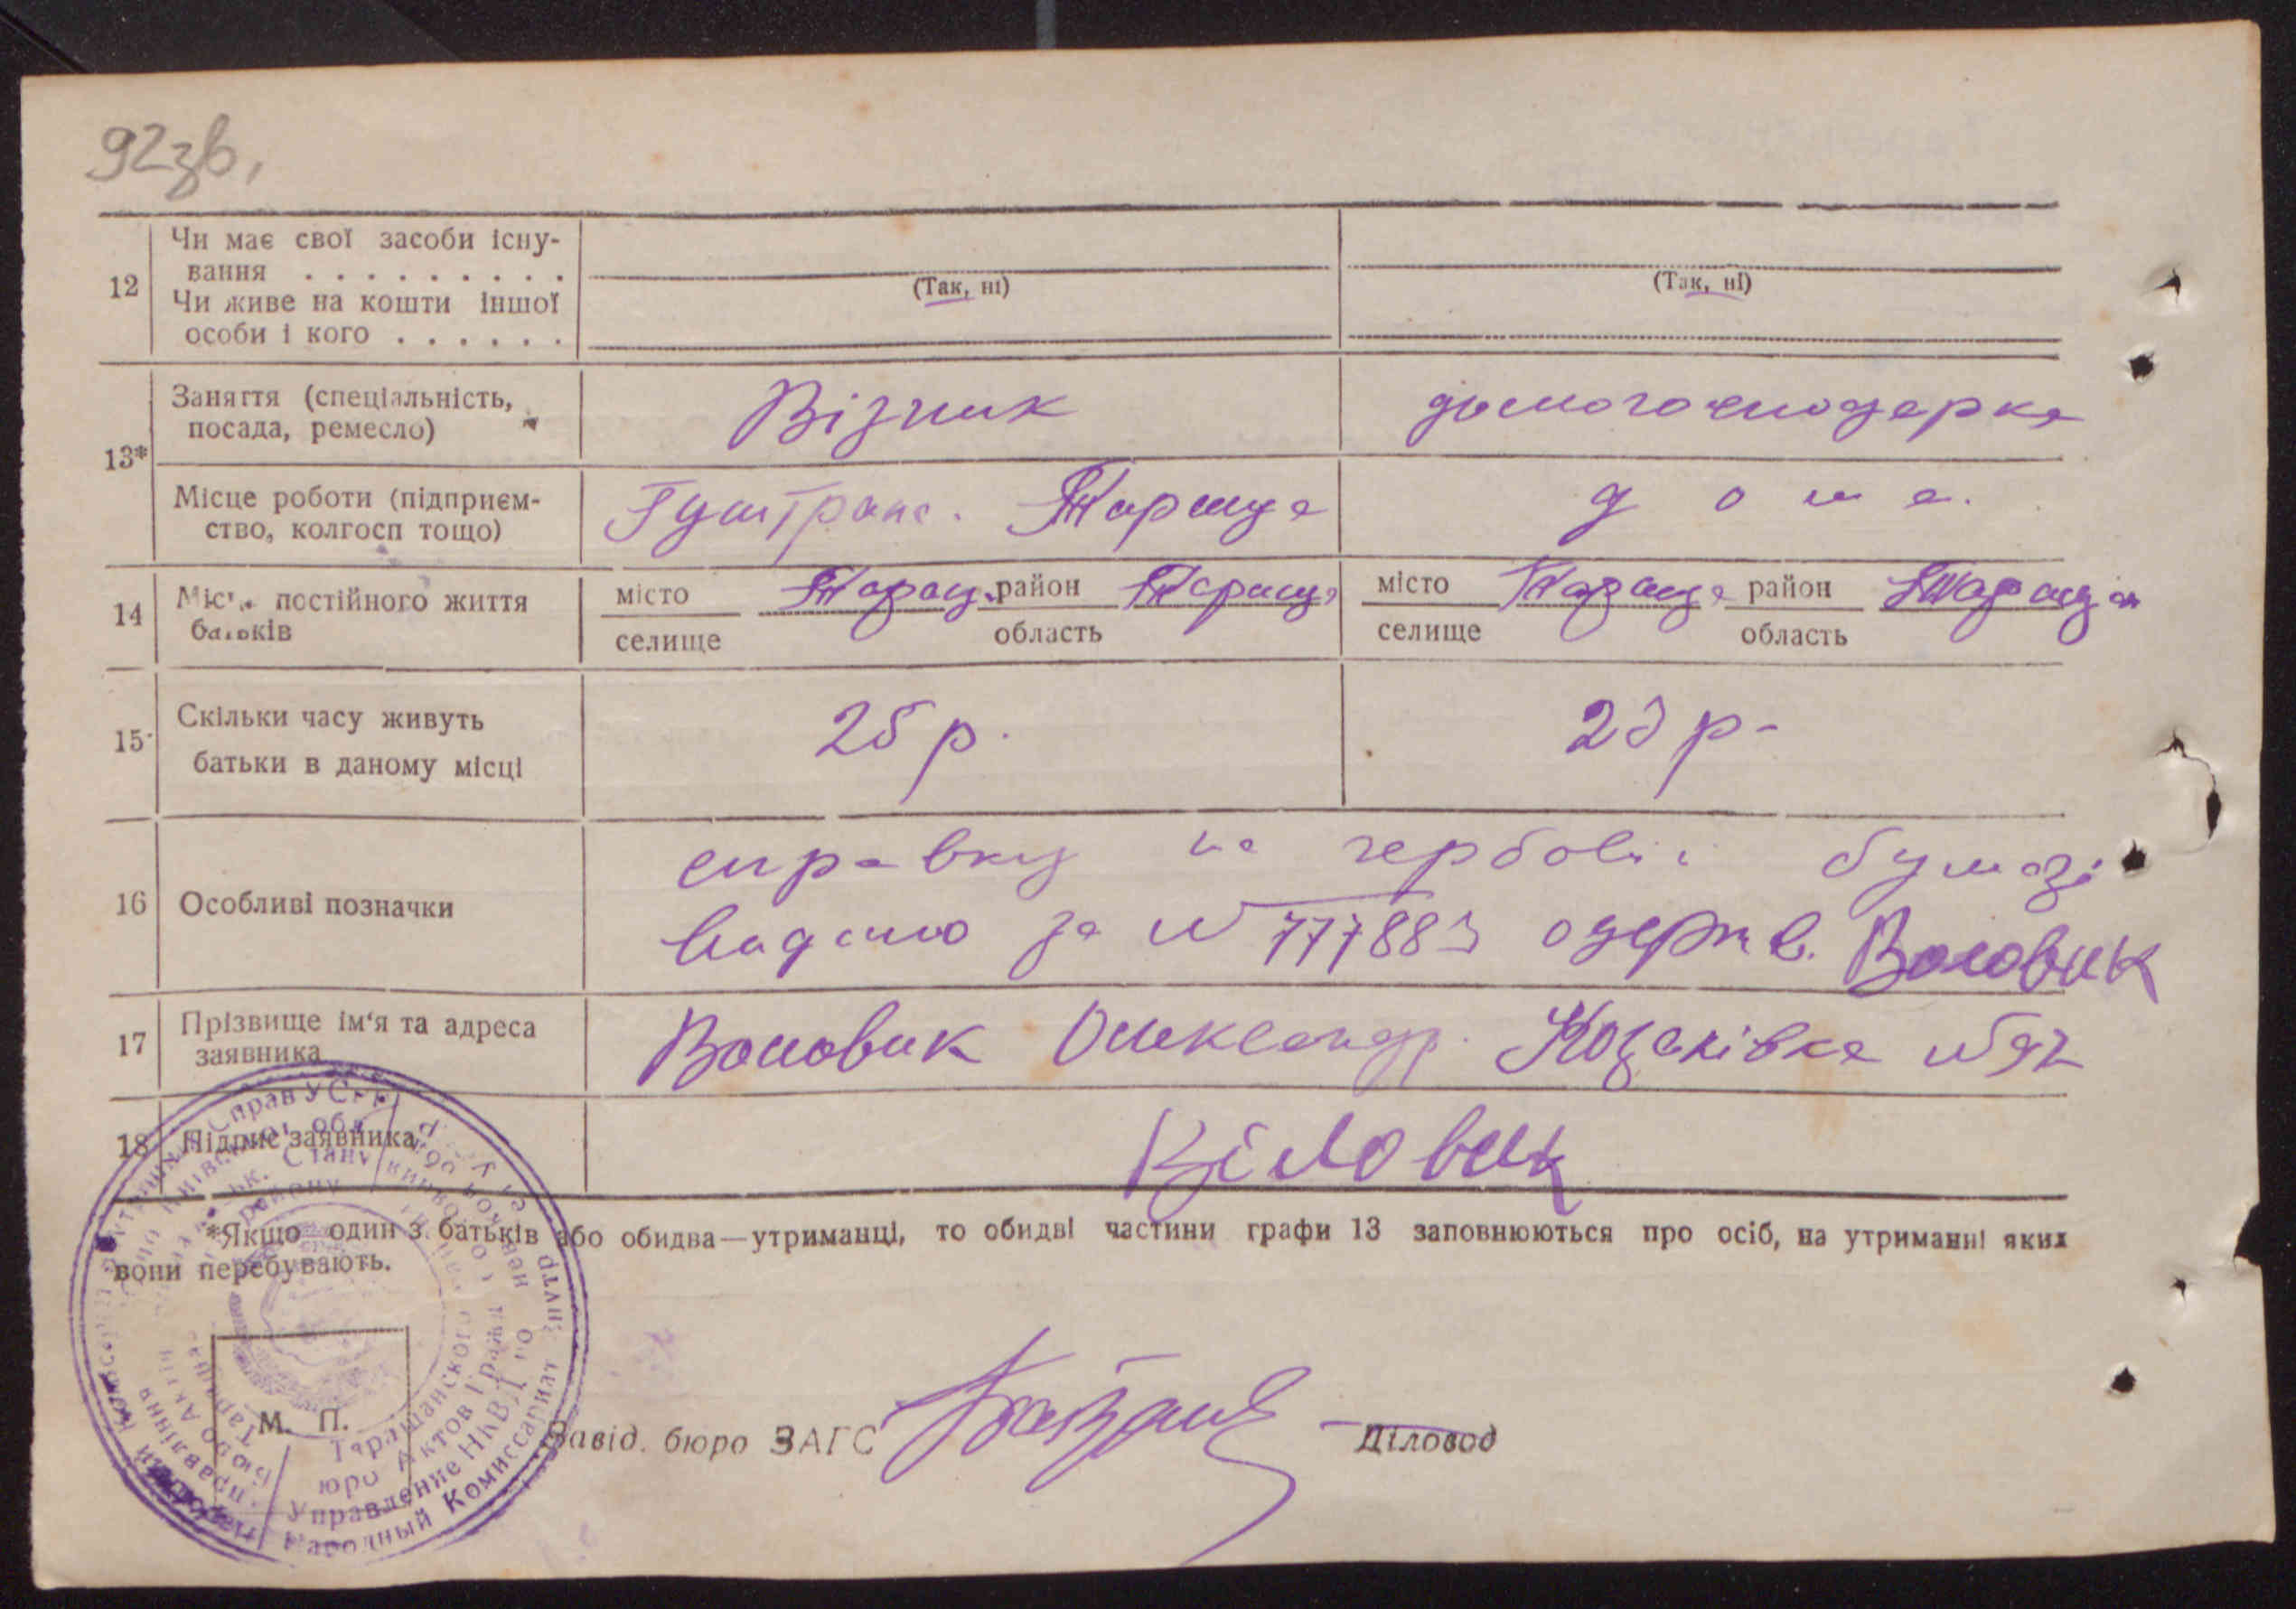 92зв.
12 Чи має свої засоби існу-
вання . . . . . . . . .
Чи живе на кошти іншої
особи і кого . . . . . .
(Так, ні) (Так, ні)
13* Заняття (спеціальність,
посада, ремесло)
Візник домогосподарка
Місце роботи (підприєм-
ство, колгосп тощо)
Гужтранс. Тараща дома.
14 Місце постійного життя
батьків
місто Тараща район Тараща місто Тараща район Таращан
селище область селище область
15 Скільки часу живуть
батьки в даному місці
25 р. 23 р-
16 Особливі позначки
справку на гербовій бумазі
видано за № 777883 одержав. Воловик
17 Прізвище ім'я та адреса
заявника
Воловик Олександр. Козаківка № 92
18 Підпис заявника
Воловик
*Якщо один з батьків або обидва—утриманці, то обидві частини графи 13 заповнюються про осіб, на утриманні яких
вони перебувають.
М. П.
Завід. бюро ЗАГС Діловод
Таращанского
бюро Актов Гражд
Управление НКВД по
Народный Комиссариат